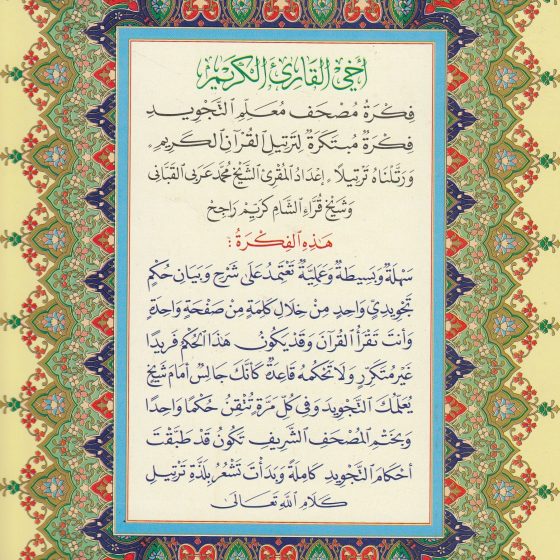 أخي القارئ الكريم
فِكرَةُ مُصْحَفِ مُعَلِّمِ التَّجْوِيدِ
فِكرَةٌ مُبْتَكَرَةٌ لِتَرتِيلِ القُرْآنِ الكَرِيمِ
وَرَتَّلْنَاهُ تَرْتِيلًا، إعْدَادُ المُقْرِئ الشَّيْخ مُحَمَّد عَرَبي القَبَّاني
وَشَيْخ قُرَّاءِ الشَّامِ كرَيِّم رَاجِح
هَذِهِ الفِكْرَةُ :
سَهْلَةٌ وَبَسِيطَةٌ وَعَمَلِيَّةٌ تَعْتَمِدُ عَلَى شَرْحِ وَبَيَانِ حُكْمٍ
تَجْوِيدِيٍّ وَاحِدٍ مِنْ خِلَالِ كَلِمَةٍ مِنْ صَفْحَةٍ وَاحِدَةٍ
وَأَنْتَ تَقْرَأُ القُرْآنَ وَقَدْ يَكُونُ هَذَا الحُكْمُ فَرِيدًا
غَيْرَ مُتَكَرِّرٍ وَلَا تَحْكُمُه قَاعِدَةٌ كَأَنَّكَ جَالِسٌ أَمَامَ شَيْخٍ
يُعَلِّمُكَ التَّجْوِيدَ وَفِي كُلِّ مَرَّةٍ تُتْقِنُ حُكْمًا وَاحِدًا
وَبِخَتْمِ المُصْحَفِ الشَّرِيفِ تَكُونُ قَدْ طَبَّقْتَ
أَحْكَامَ التَّجْوِيدِ كَامِلَةً وَبَدَأْتَ تَشْعُرُ بِلَذَّةِ تَرْتِيلِ
كَلَامِ اللَّهِ تَعَالَى